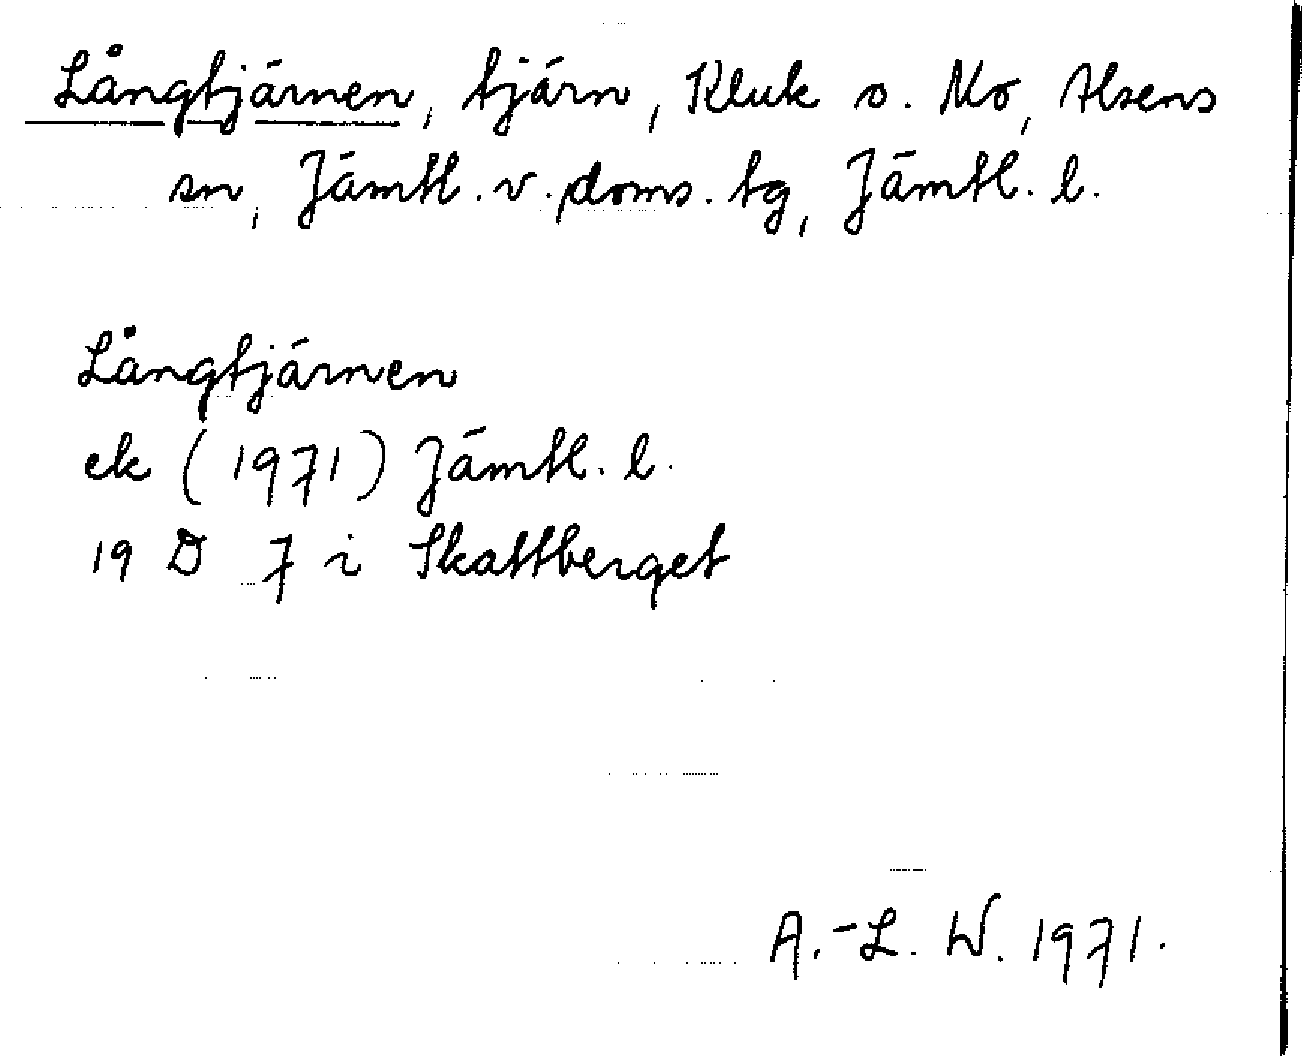 Långtjärnen, tjärn, Kluk o. Mo, Alsens
sn, Jämtl. v. doms. tg, Jämtl. l.
Långtjärnen
ek (1971) Jämtl. l.
19 D 7 i Skattberget
A.-L. W. 1971.